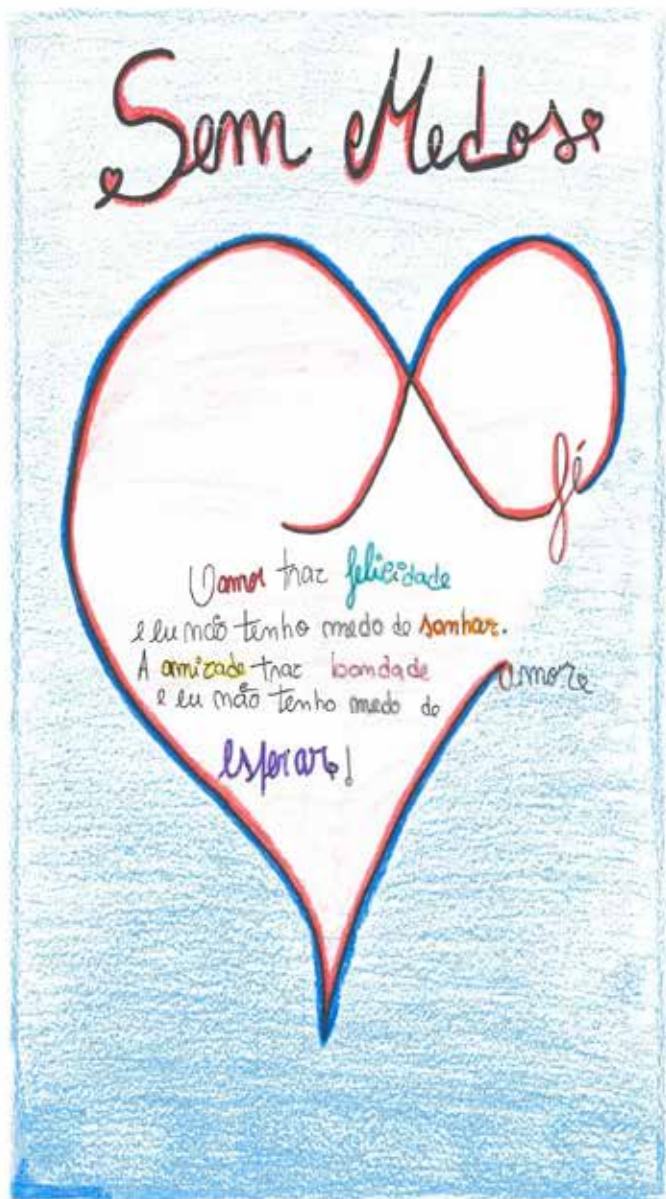 Sem Medos
fé
O amor traz felicidade
e eu não tenho medo de sonhar.
A amizade traz bondade
amore
e eu não tenho medo de
esperar!